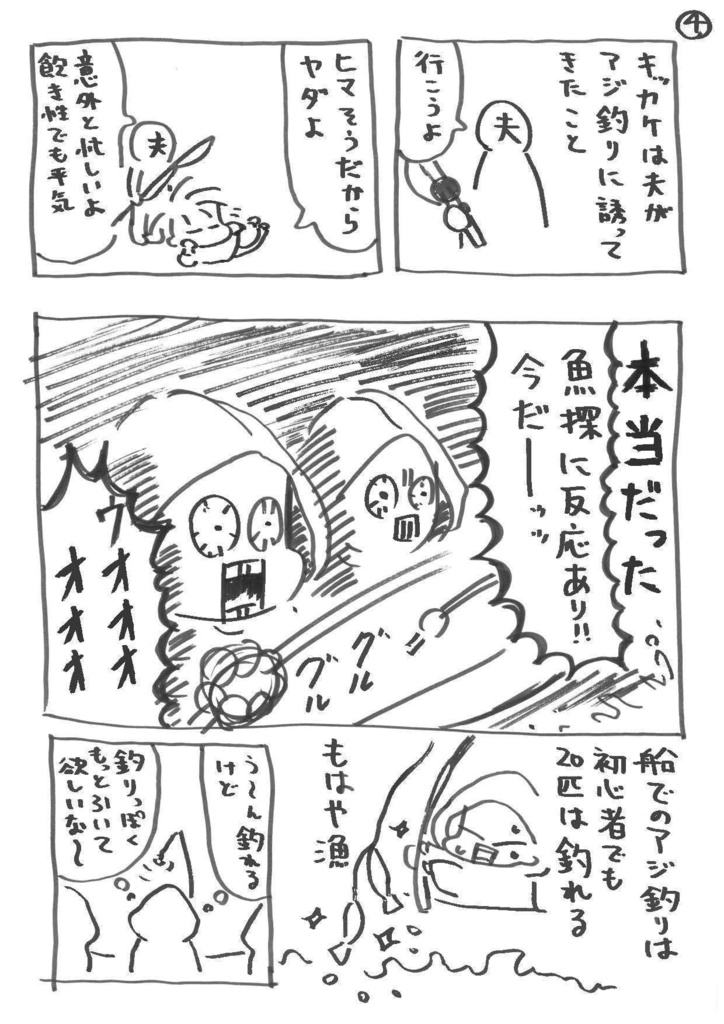 4
キッカケは夫が
アジ釣りに誘って
きたこと
夫
行こうよ
ヒマそうだから
ヤダよ
夫
意外と忙しいよ
飽き性でも平気
本当だった
魚探に反応あり!!
今だーーッッ
ウオオオ
オオオ
グル
グル
船でのアジ釣りは
初心者でも
20匹は釣れる
もはや漁
う〜ん釣れる
けど
釣りっぽく
もっと引いて
欲しいな〜